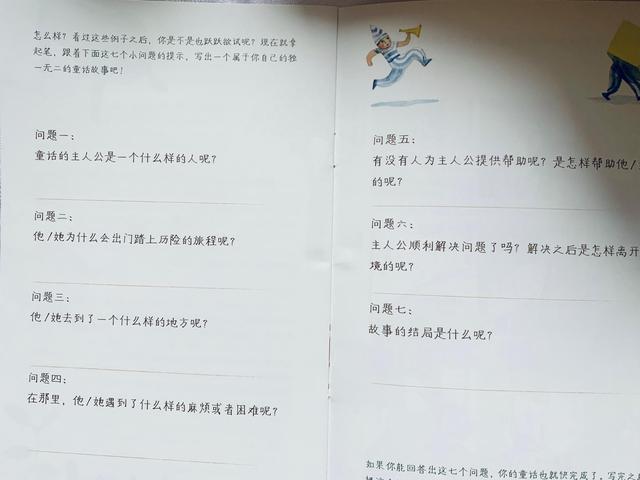 怎么样？看过这些例子之后，你是不是也跃跃欲试呢？现在就拿
起笔，跟着下面这七个小问题的提示，写出一个属于你自己的独
一无二的童话故事吧！
问题一：
童话的主人公是一个什么样的人呢？
问题二：
他/她为什么会出门踏上历险的旅程呢？
问题三：
他/她去到了一个什么样的地方呢？
问题四：
在那里，他/她遇到了什么样的麻烦或者困难呢？
问题五：
有没有人为主人公提供帮助呢？是怎样帮助他/
的呢？
问题六：
主人公顺利解决问题了吗？解决之后是怎样离开
境的呢？
问题七：
故事的结局是什么呢？
如果你能回答出这七个问题，你的童话也就快完成了。写完之